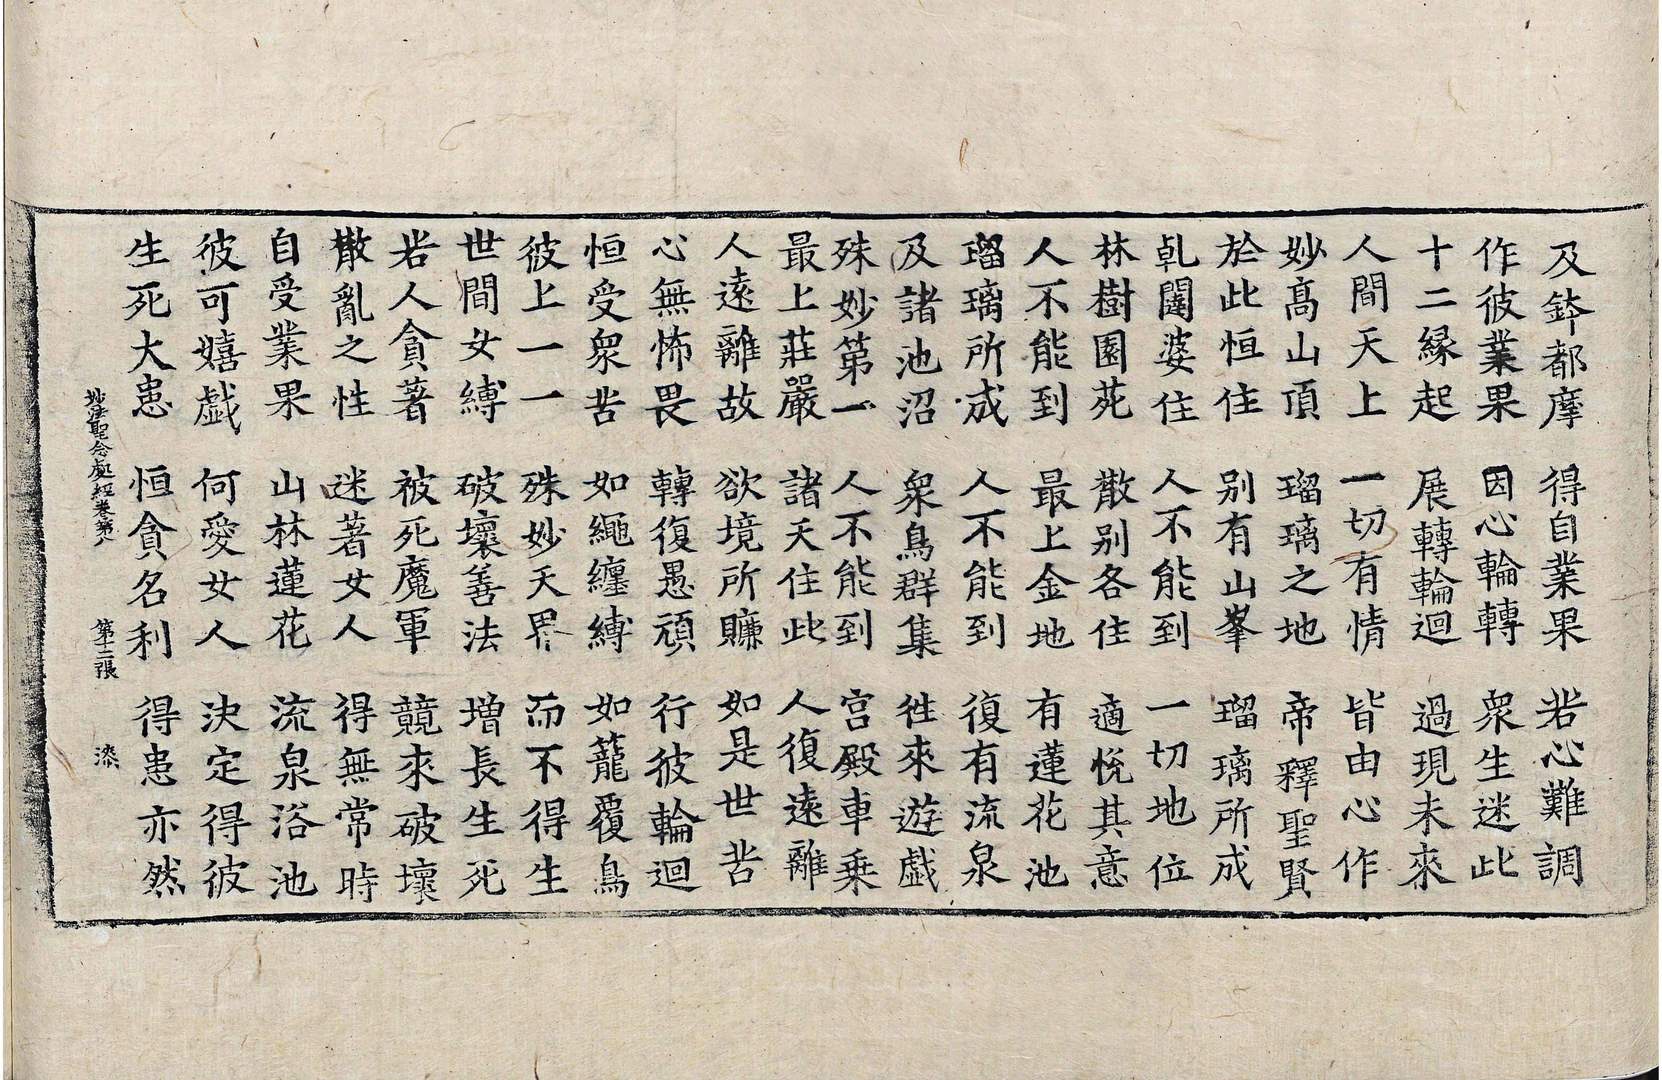 及鉢都摩　得自業果　若心難調
作彼業果　因心輪轉　衆生迷此
十二縁起　展轉輪迴　過現未來
人間天上　一切有情　皆由心作
妙髙山頂　瑠璃之地　帝釋聖賢
於此恒住　别有山峯　瑠璃所成
乹闥婆住　人不能到　一切地位
林樹園苑　散别各住　適悅其意
人不能到　最上金地　有蓮花池
瑠璃所成　人不能到　復有流泉
及諸池沼　衆鳥群集　徃來遊戱
殊妙第一　人不能到　宫殿車乗
最上莊嚴　諸天住此　人復遠離
人遠離故　欲境所賺　如是世苦
心無怖畏　轉復愚頑　行彼輪迴
恒受衆苦　如繩纏縛　如籠覆鳥
彼上一一　殊妙天界　而不得生
世間女縛　破壞善法　増長生死
若人貪著　被死魔軍　競來破壞
散亂之性　迷著女人　得無常時
自受業果　山林蓮花　流泉浴池
彼可嬉戱　何愛女人　決定得彼
生死大患　恒貪名利　得患亦然
妙法聖念處經卷第八　第十二張　漆